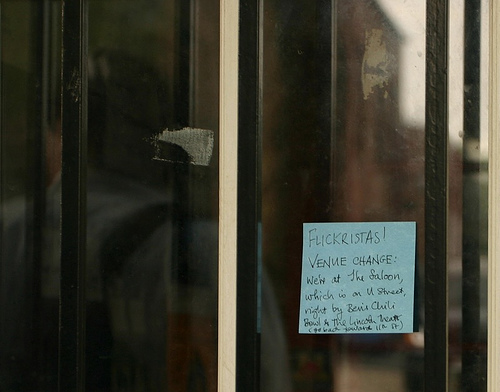 FLICKRISTAS!
VENUE CHANGE:
We're at The Saloon,
which is on U Street,
right by Ben's Chili
Bowl & The Lincoln Theatr
(go back towards 11th St)